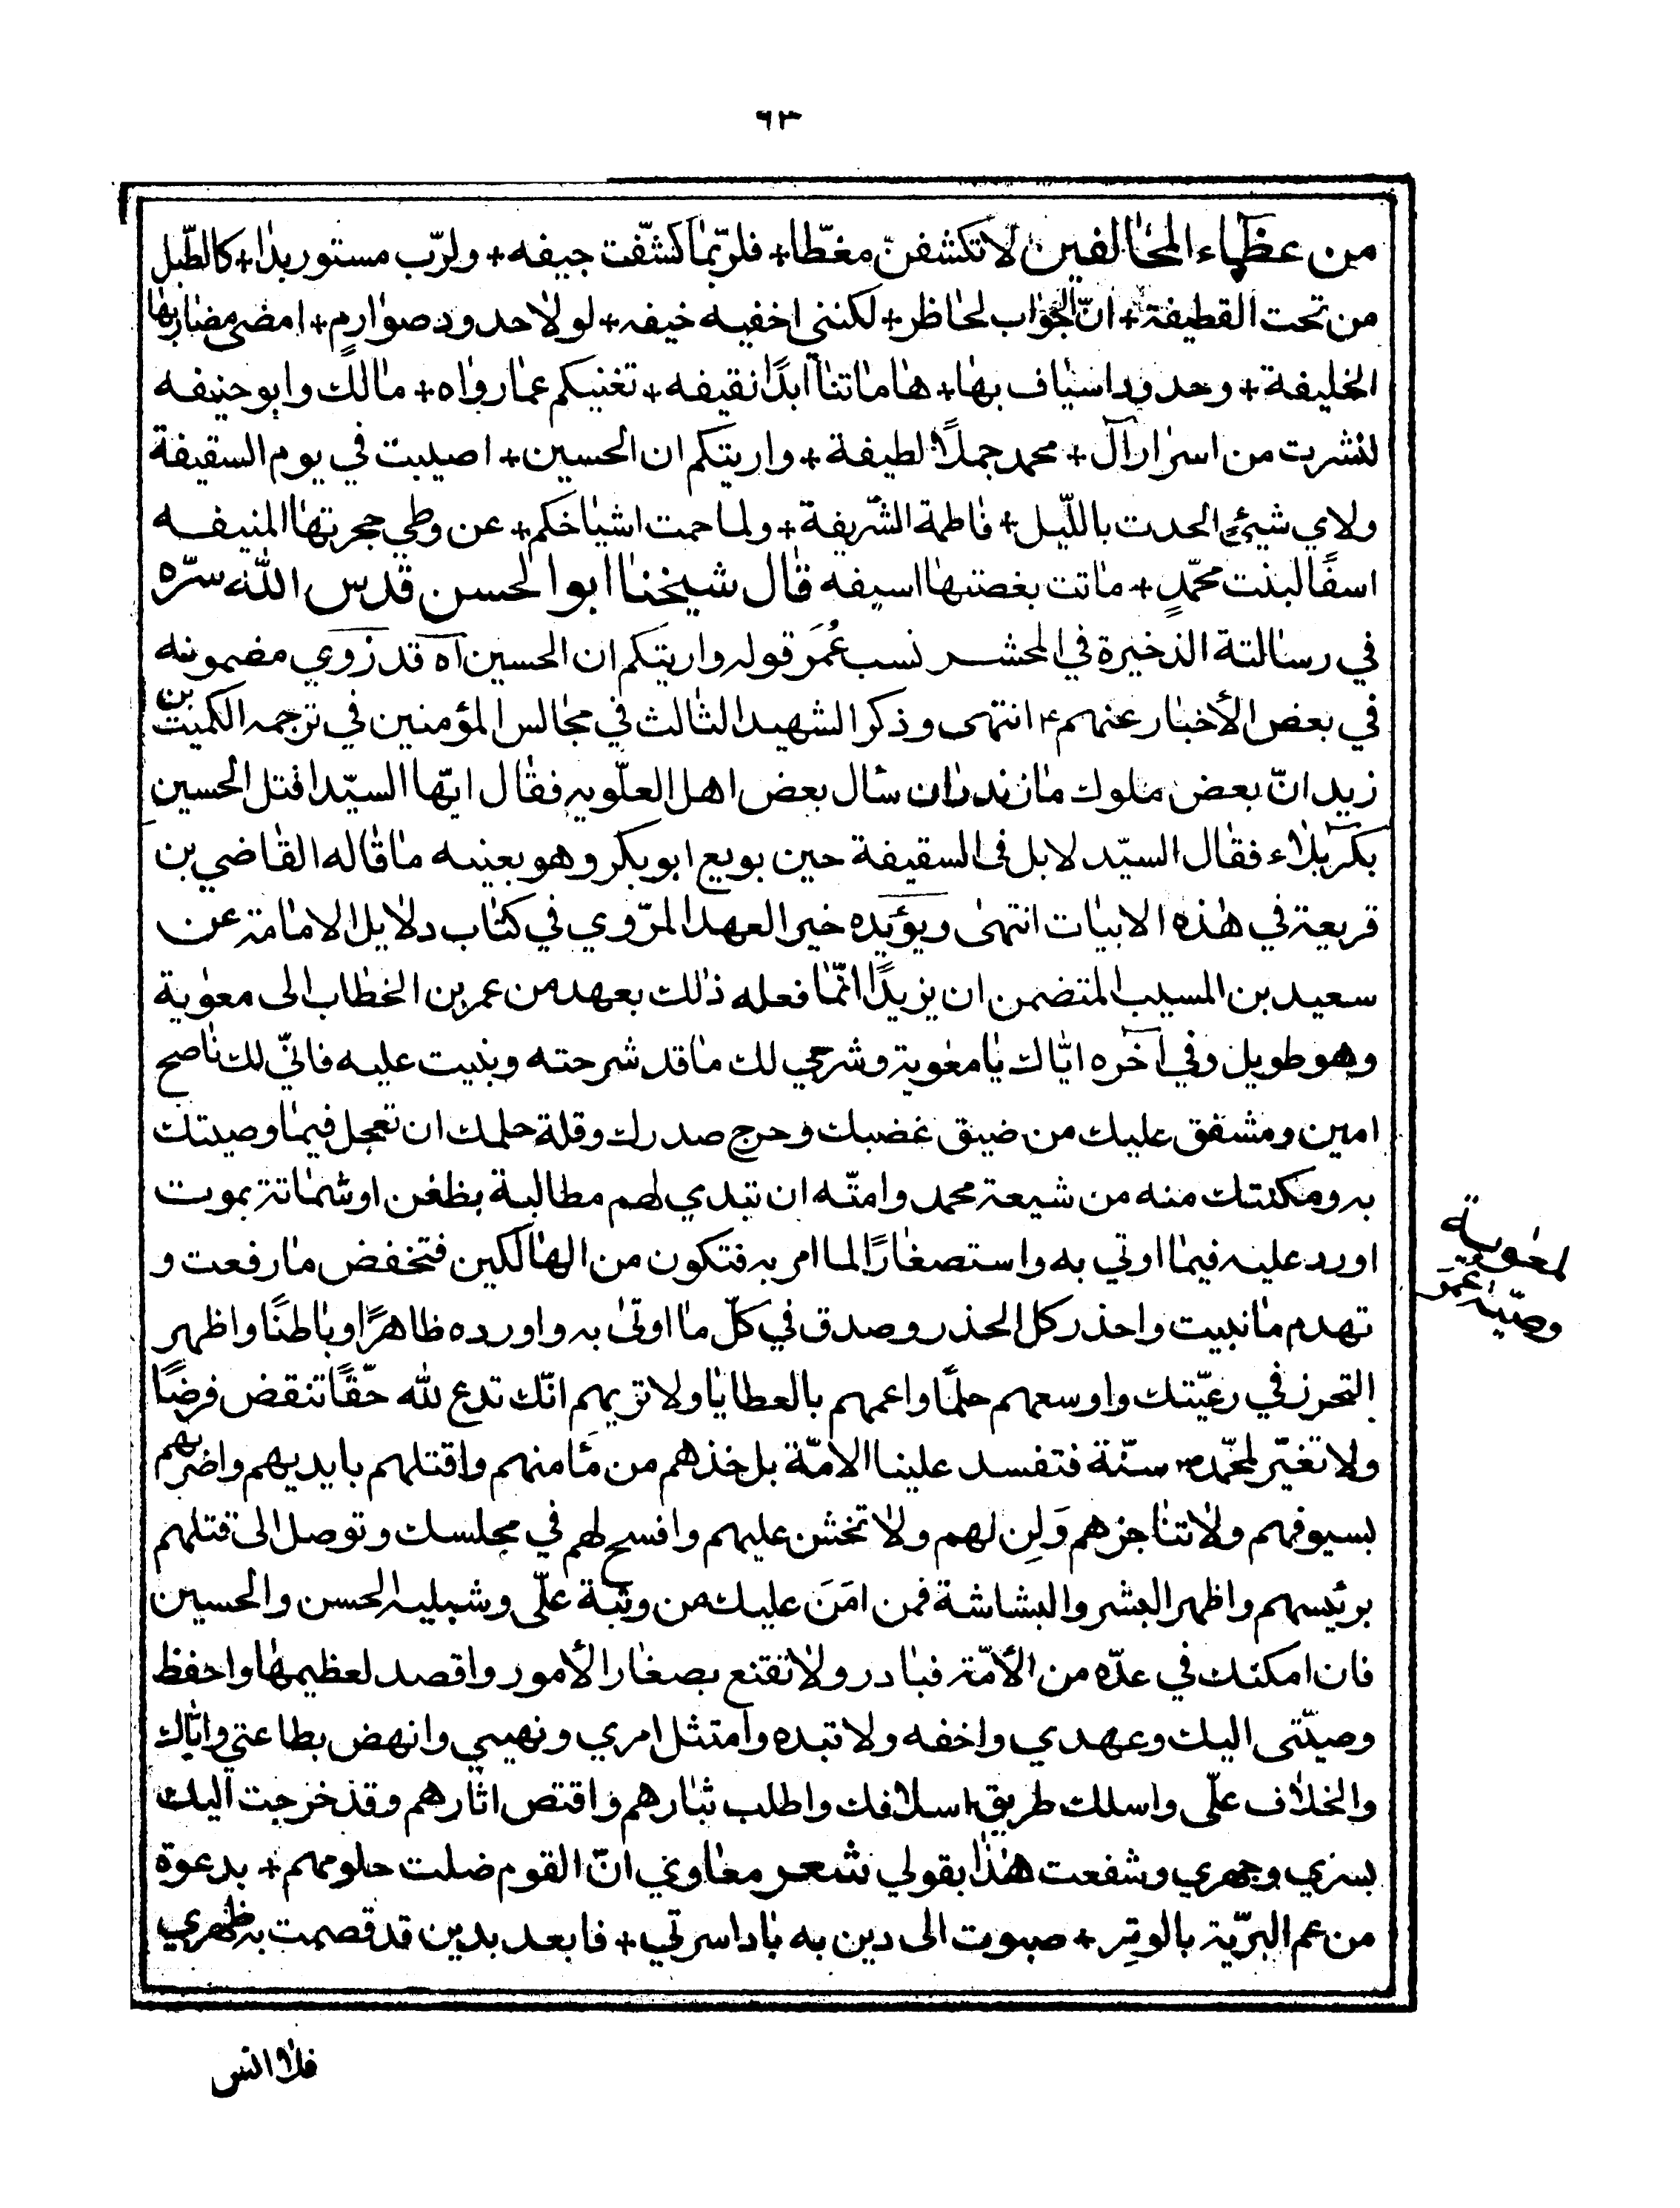 ٦٣
من عظماء المخالفين لا تكشفنّ مغطّا + فلربّما كشّفت جيفه + ولربّ مستور بدا + كالطّبل
من تحت القطيفة + انّ الجواب لحاظر + لكنني اخفيه خيفه + لولا حدود صوارم + امضى مضاربها
الخليفة + وحدود اسياف بها + هاماتنا ابدًا نقيفه + تغنيكم عما رواه + مالك وابو حنيفه
لنشرت من اسرار آل + محمد جملًا لطيفة + واريتكم ان الحسين + اصيبت في يوم السقيفة
ولاي شيئ الحدت بالليل + فاطمة الشّريفة + ولما حمت اشياخكم + عن وطي حجرتها المنيفه
اسفًا لبنت محمّدٍ + ماتت بغصتها اسيفه قال شيخنا ابوالحسن قدس الله سرّه
في رسالته الذخيرة في المحشر نسب عُمَر قوله واريتكم ان الحسين آه قد روي مضمونه
في بعض الأخبار عنهم ع انتهى وذكر الشهيد الثالث في مجالس المؤمنين في ترجمه الكميت بن
زيد انّ بعض ملوك مازندران سأل بعض اهل العلّويه فقال ايّها السيّد اقتل الحسين
بكربلاء فقال السيّد لا بل في السقيفة حين بويع ابو بكر وهو بعينه ما قاله القاضي بن
قريعة في هذه الابيات انتهى ويؤيده خبر العهد المرّوي في كتاب دلايل الامامة عن
سعيد بن المسيب المتضمن ان يزيدًا انّما فعله ذلك بعهد من عمر بن الخطاب الى معوية
وهو طويل وفي آخره ايّاك يا معوية وشرحي لك ما قد شرحته وبنيت عليه فانّي لك ناصح
امين ومشفق عليك من ضيق غضبك وحرج صدرك وقلة حلمك ان تعجل فيما وصيتك
به ومكنتك منه من شيعة محمد وامتّه ان تبدي لهم مطالبة بظغن او شماتة بموت
اورد عليه فيما اوتي به واستصغارًا لما امر به فتكون من الهالكين فتخفض ما رفعت و
تهدم ما بنيت واحذر كل الحذر وصدق في كلّ ما اوتى به واورده ظاهرًا وباطنًا واظهر
التحرز في رعيّتك واوسعهم حلمًا واعمهم بالعطايا ولا تريهم انّك تدع لله حقًّا تنقض فرضًا
ولا تغيّر لمحمّد ص سنّة فتفسد علينا الامّة بل خذهم من مأمنهم واقتلهم بايديهم واضربهم
بسيوفهم ولا تناجزهم وَلِن لهم ولا تخشن عليهم وافسح لهم في مجلسك وتوصل الى قتلهم
برئيسهم واظهر البشر والبشاشة فمن امَنَ عليك من وثبة علّى وشبليه الحسن والحسين
فان امكنك في عدّه من الأمّة فبادر ولا تقتنع بصغار الأمور واقصد لعظيمها واحفظ
وصيّتى اليك وعهدي واخفه ولا تبده وامتثل امري ونهيي وانهض بطاعتي وايّاك
والخلاف علّى واسلك طريق اسلافك واطلب بثارهم واقتص اثارهم وقد خرجت اليك
بسري وجهري وشفعت هذا بقولي شعر معاوي انّ القوم ضلت حلومهم + بدعوة
من عم البرّية بالوتِر + صبوت الى دين به باد اسرتي + فابعد بدين قد قصمت به ظهري
وصيّة عمَر
لمعوية
فلا انس